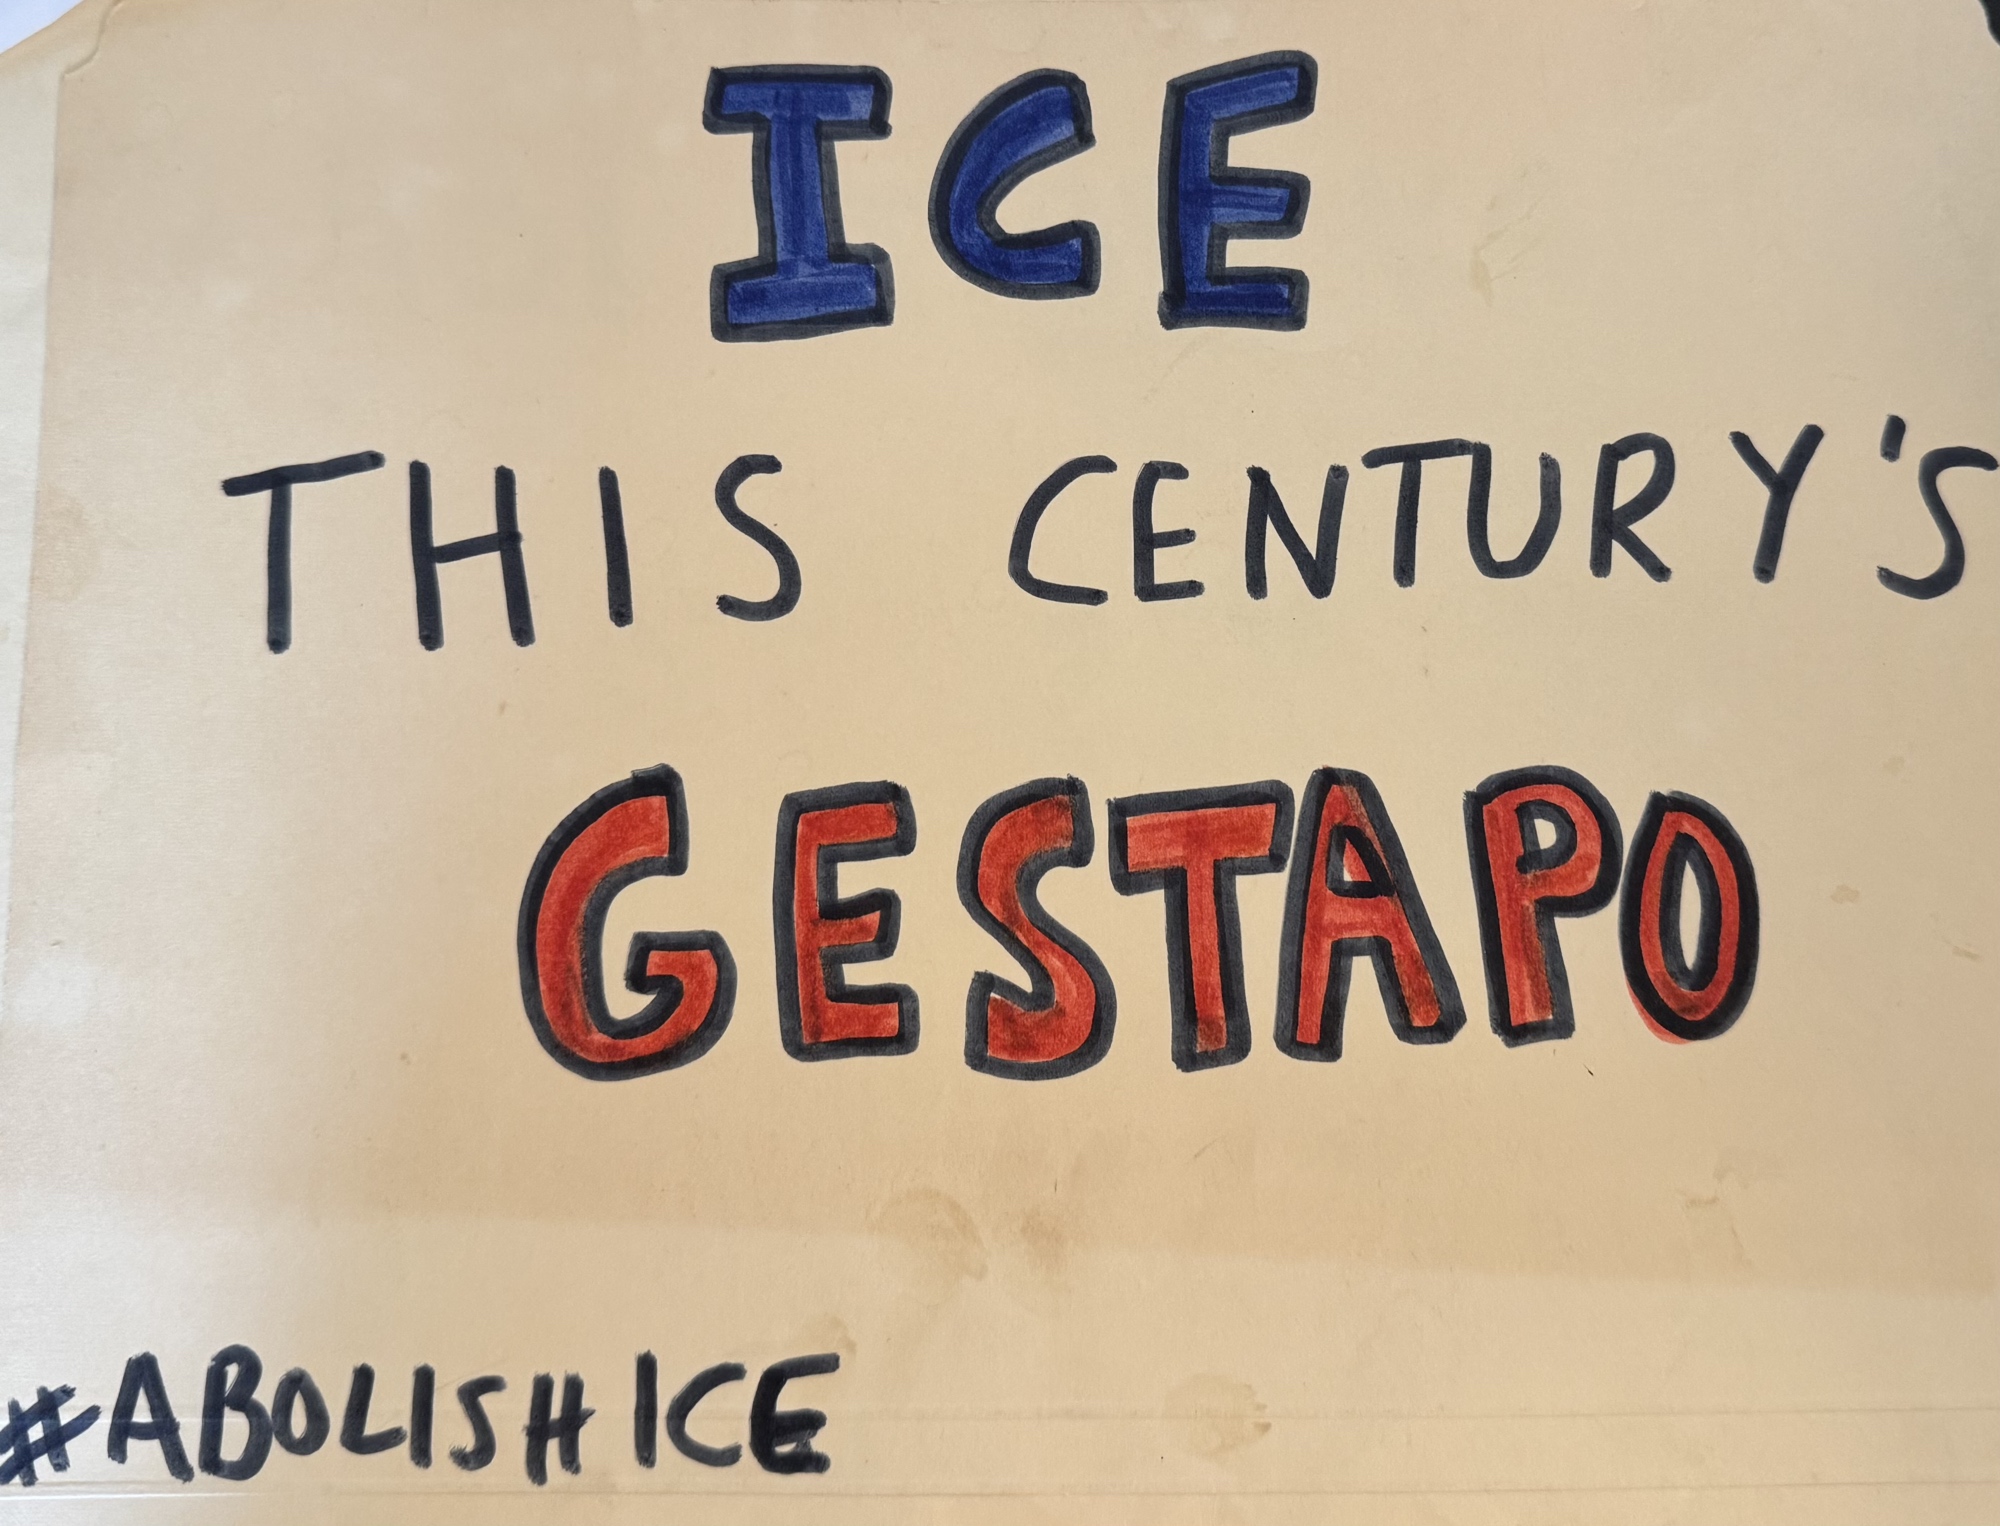 ICE
THIS CENTURY'S
GESTAPO
#ABOLISH ICE